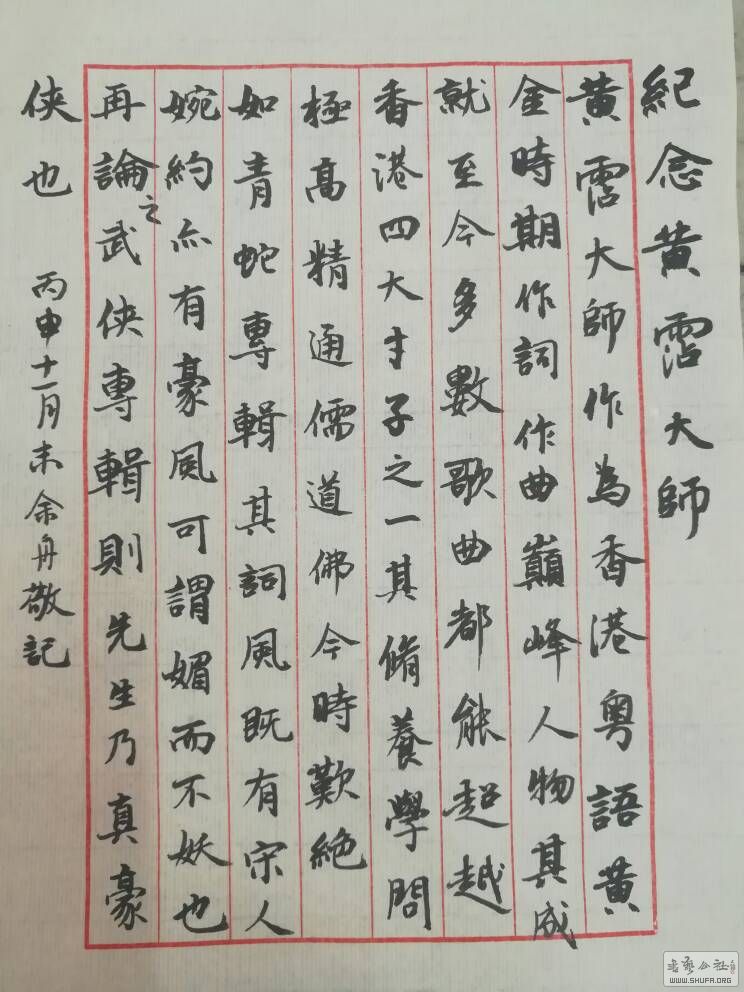 紀念黄霑大師
黄霑大師作為香港粤語黄
金時期作詞作曲巔峰人物其成
就至今多數歌曲都能超越
香港四大才子之一其脩養學問
極高精通儒道佛今時歎絕
如青蛇專輯其詞風既有宋人
婉約亦有豪風可謂媚而不妖也
再論之武俠專輯則先生乃真豪
俠也
丙申十一月末余舟敬記
書藝公社
WWW.SHUFA.ORG